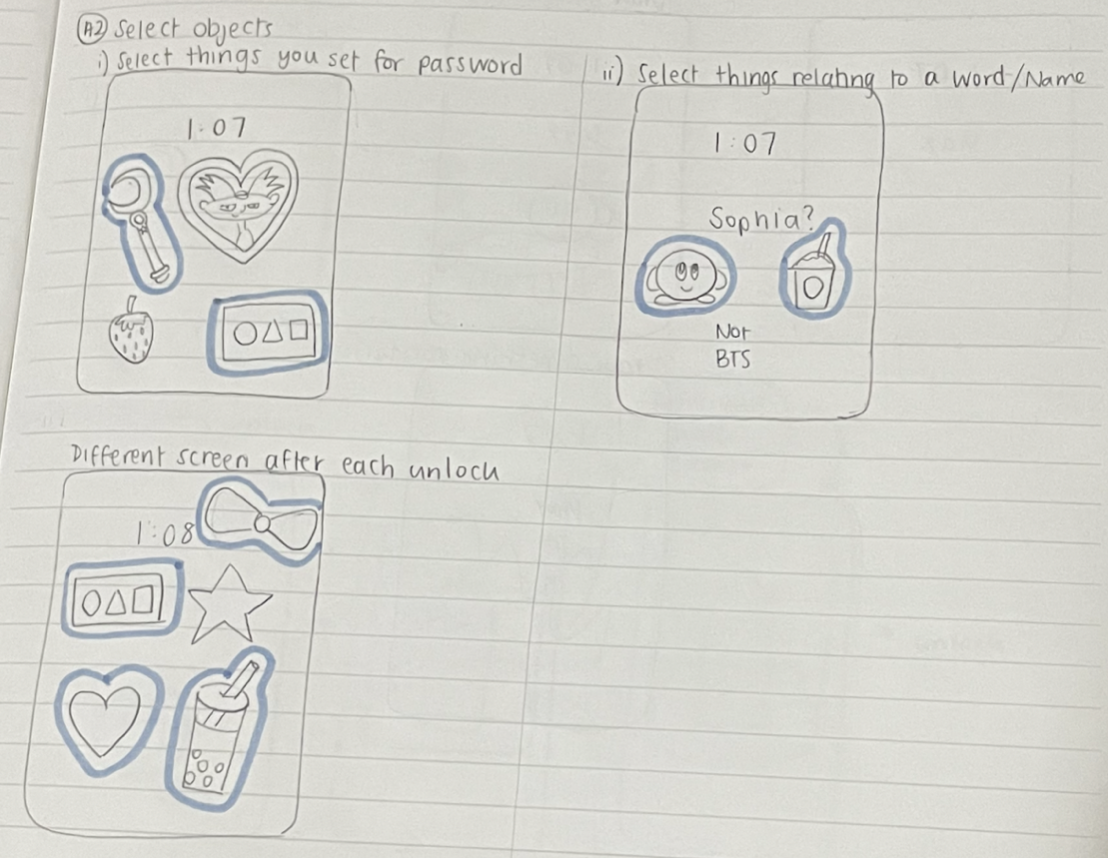 A2 Select objects
i) Select things you set for password
1:07
ii) Select things relating to a word/Name
1:07
Sophia?
Not
BTS
Different screen after each unlock
1:08